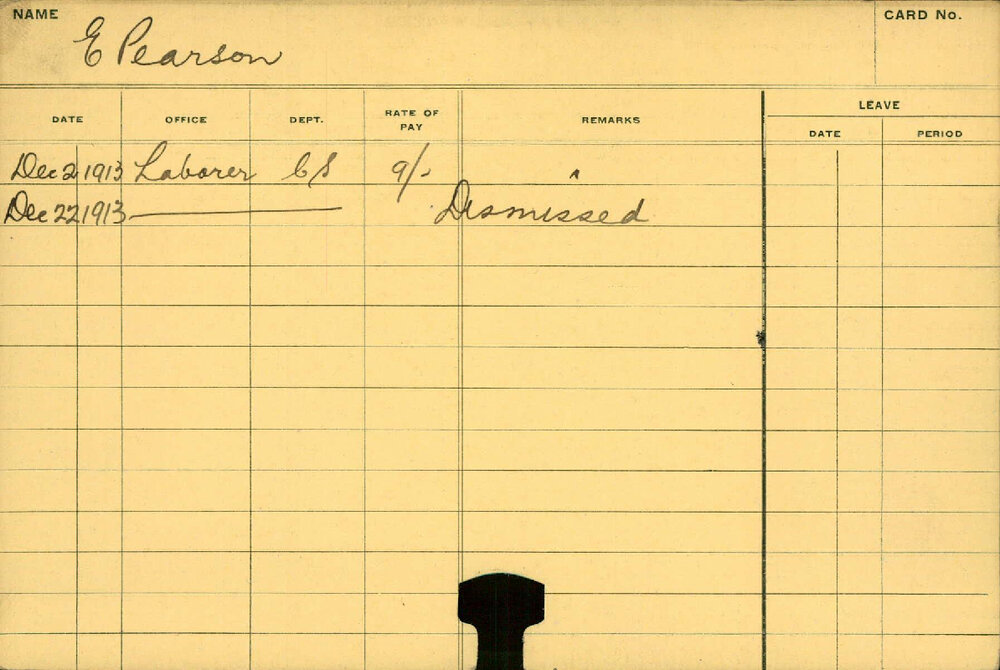 NAME CARD No.
E Pearson
LEAVE
DATE OFFICE DEPT. RATE OF PAY REMARKS
DATE PERIOD
Dec 2 1913 Laborer 9/-
Dec 22 1913 Dismissed